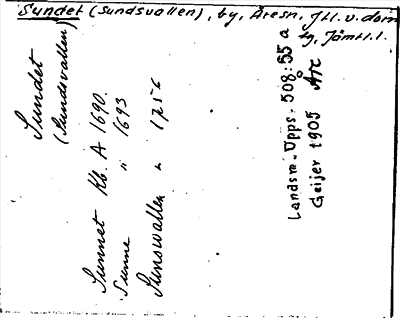 Sundet (Sundsvallen), by, Åresn, Jtl. v. dom
tg, Jämtl. l.
Sundet
(Sundsvallen)
Sunnet Kb. A 1690.
Sunne " 1693
Sunswallen " 1756
Landsm. Upps. 508:55 a
Geijer 1905